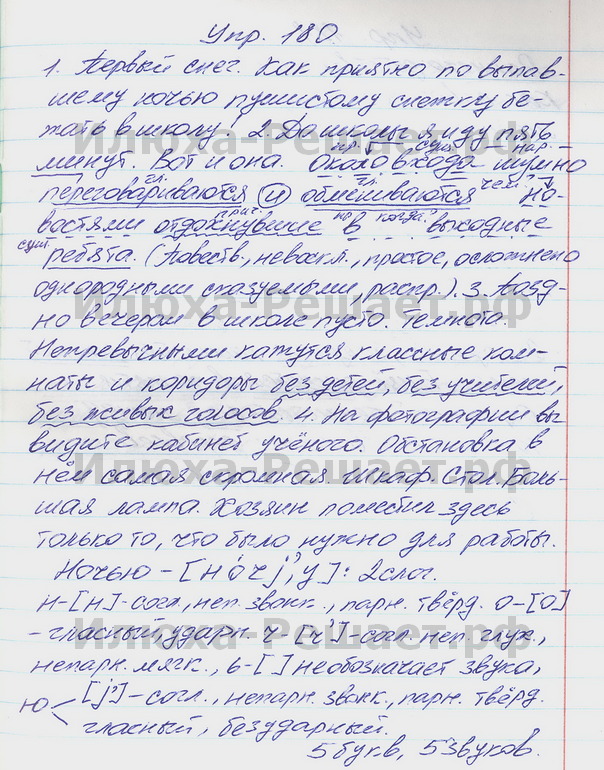 Упр. 180.
1. Первый снег. Как приятно по выпав-
шему ночью пушистому снежку бе-
жать в школу! 2. До школы я иду пять
минут. Вот и она. Около входа шумно
переговариваются и обмениваются но-
востями отдохнувшие в выходные
ребята. (Повеств., невоскл., простое, осложнено
однородными сказуемыми, распр.). 3. Позд-
но вечером в школе пусто. Темнота.
Непревычными кажутся классные ком-
наты и коридоры без детей, без учителей,
без живых голосов. 4. На фотографии вы
видите кабинет учёного. Обстановка в
нём самая скромная. Шкаф. Стол. Боль-
шая лампа. Хозяин поместил здесь
только то, что было нужно для работы.
Ночью - [н о́ ч' j' у]: 2 слог.
н - [н] - согл., неп. звонк., парн. твёрд. о - [о]
- гласный, ударн. ч - [ч'] - согл. неп. глух.,
непарн. мягк., ь - [ ] не обозначает звука,
ю [j'] - согл., непарн. звонк., парн. твёрд.
гласный, безударный.
5 букв, 5 звуков.
Илюха-Решает.рф
Илюха-Решает.рф
Илюха-Решает.рф
Илюха-Решает.рф